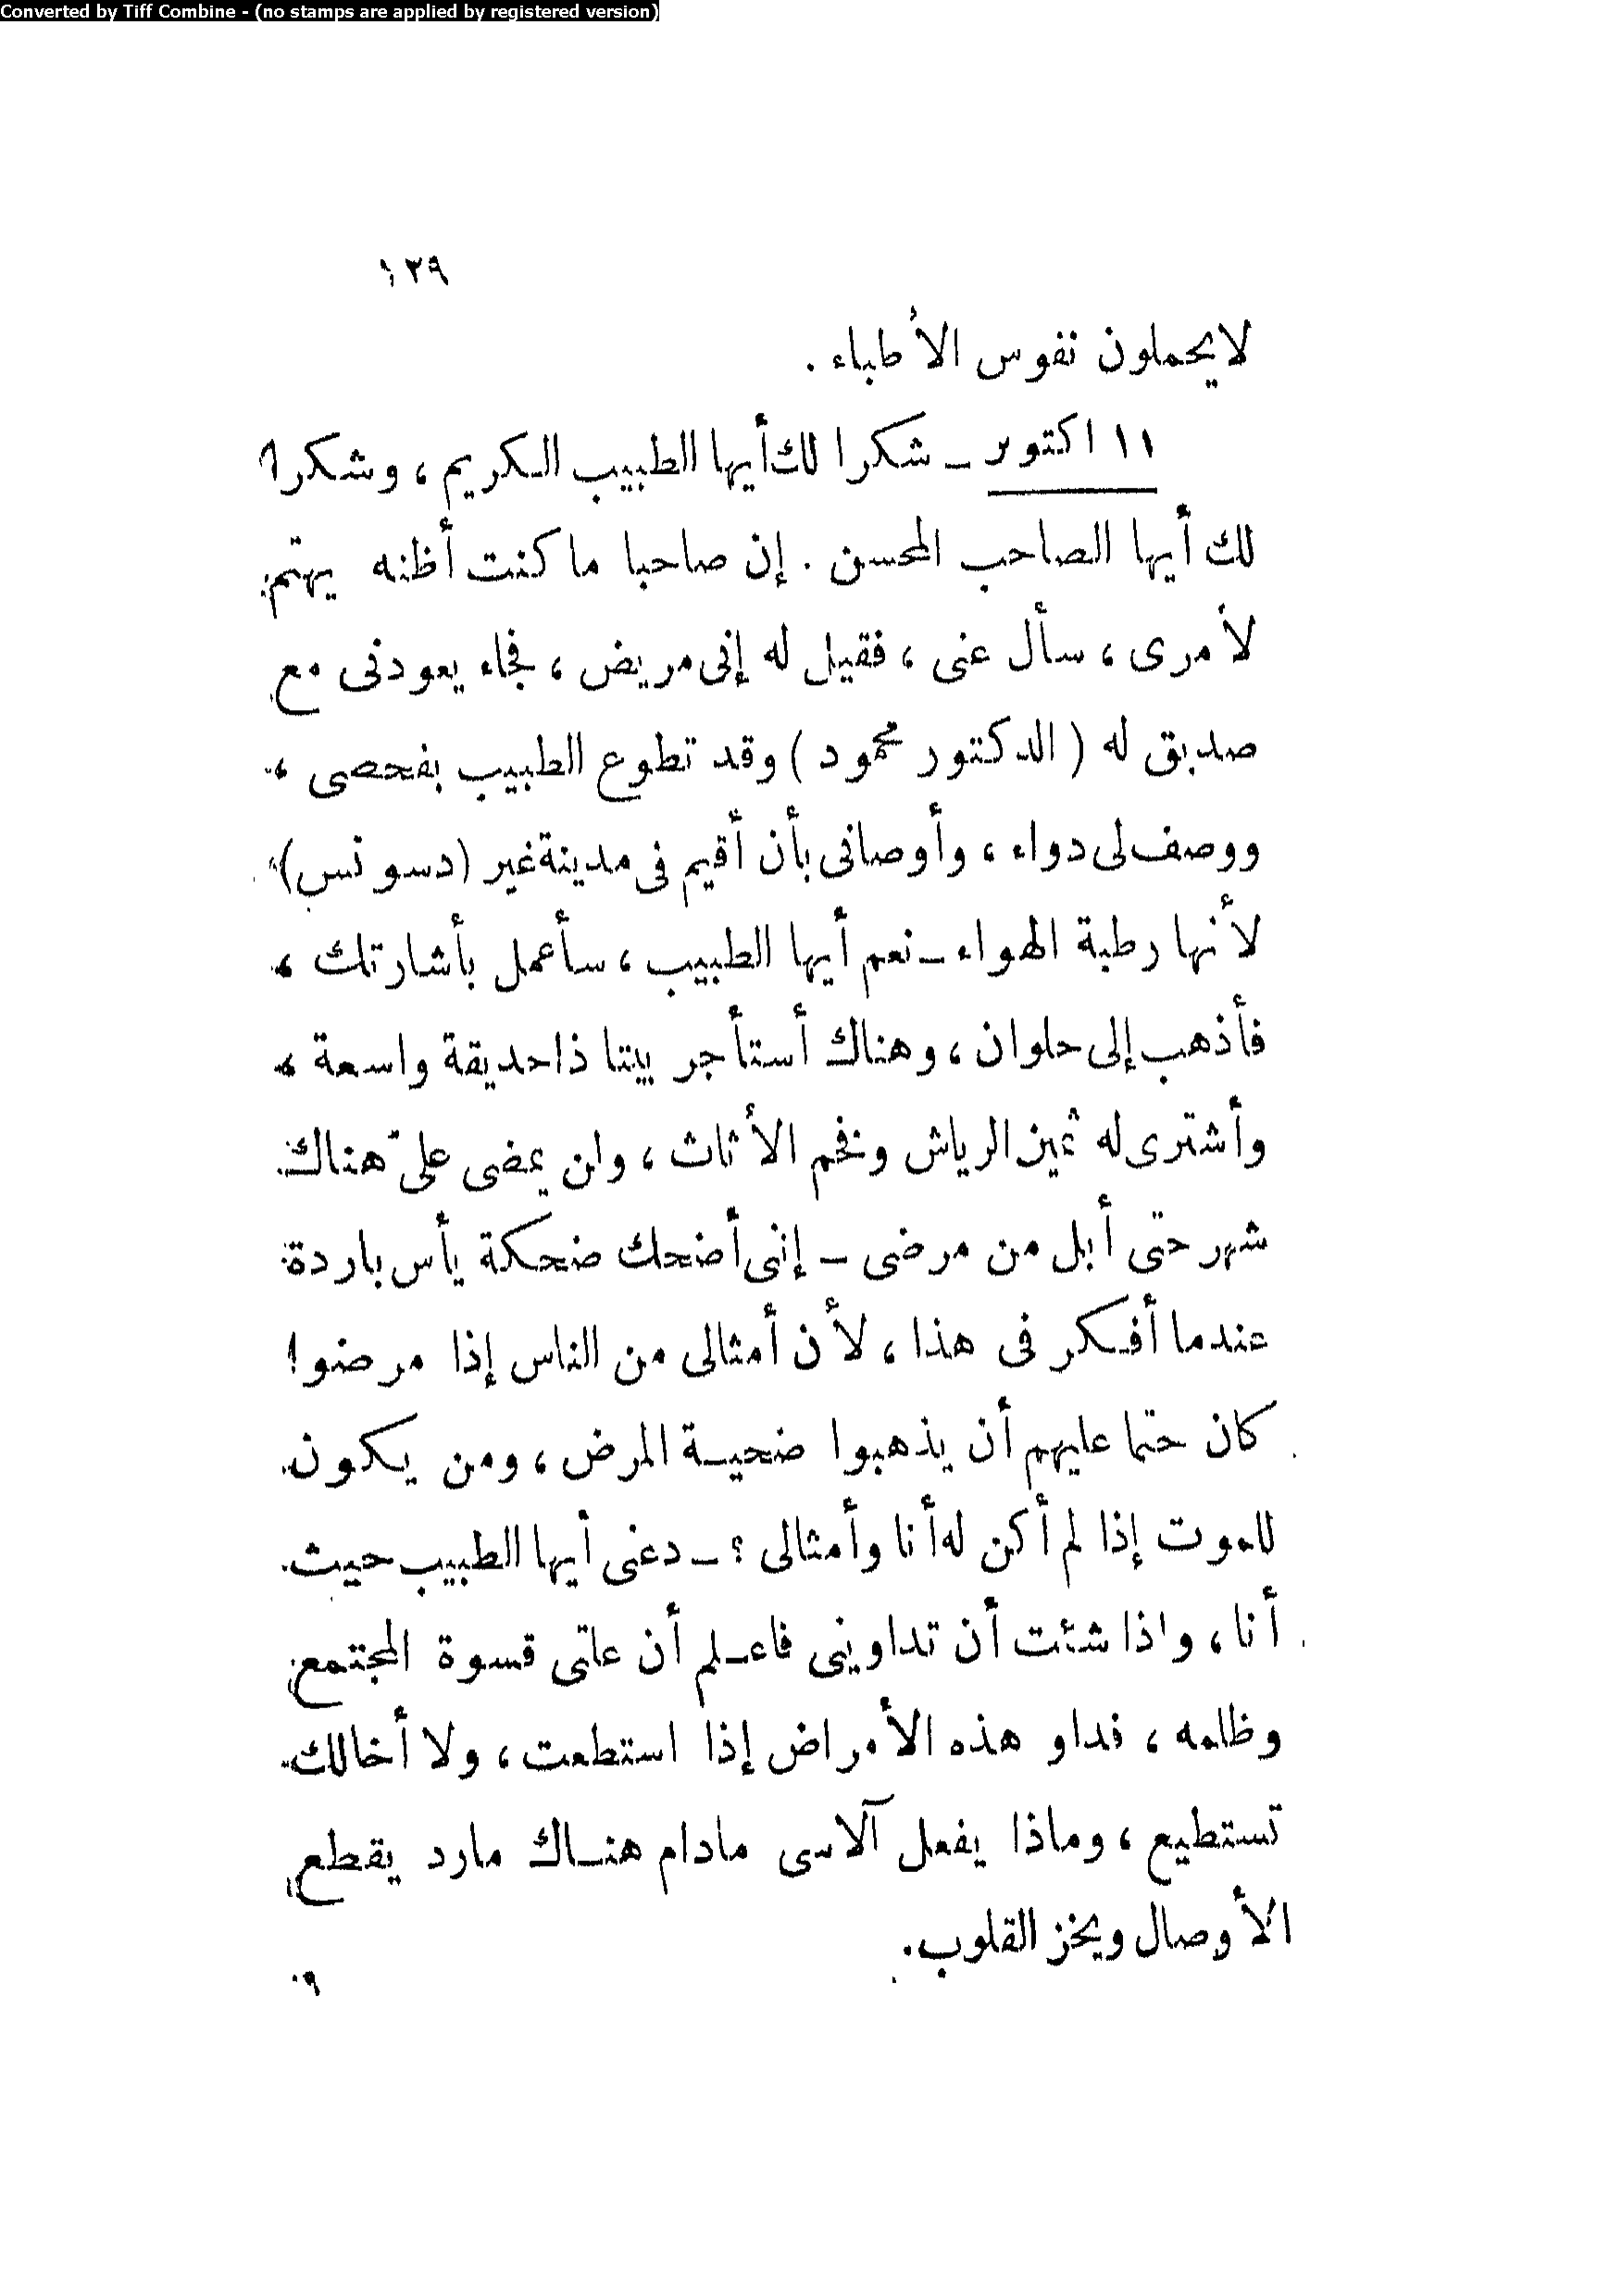 Converted by Tiff Combine - (no stamps are applied by registered version)
١٢٩
لايحملون نفوس الأطباء .
١١ اكتوبر – شكرا لك أيها الطبيب الكريم ، وشكرا
لك أيها الصاحب المحسن . إن صاحبا ما كنت أظنه يهتم
لأمرى ، سأل عنى ، فقيل له إنى مريض ، فجاء يعودنى مع
صديق له ( الدكتور محمود ) وقد تطوع الطبيب بفحصى ،
ووصف لى دواء ، وأوصانى بأن أقيم فى مدينة غير (دسونس)
لأنها رطبة الهواء – نعم أيها الطبيب ، سأعمل بأشارتك ،
فأذهب إلى حلوان ، وهناك أستأجر بيتا ذا حديقة واسعة ،
وأشترى له ثمين الرياش وفخم الأثاث ، ولن يمضى علىّ هناك
شهر حتى أبل من مرضى – إننى أضحك ضحكة يأس باردة
عندما أفكر فى هذا ، لأن أمثالى من الناس إذا مرضوا
كان حتما عليهم أن يذهبوا ضحية المرض ، ومن يكون
للموت إذا لم أكن له أنا وأمثالى ؟ – دعنى أيها الطبيب حيث
أنا ، واذا شئت أن تداوينى فاعلم أن علتى قسوة المجتمع
وظلمه ، فداو هذه الأمراض إذا استطعت ، ولا أخالك
تستطيع ، وماذا يفعل آلاسى مادام هناك مارد يقطع
الأوصال ويخز القلوب .
٩